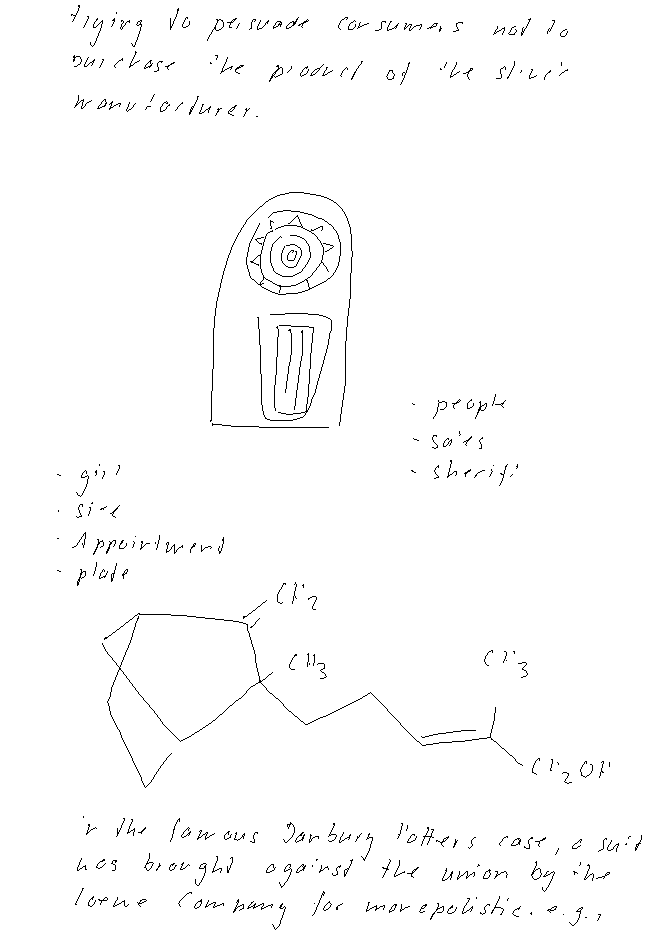 trying to persuade consumers not to
purchase the product of the struck
manufacturer.
- people
- sales
- sheriff
- girl
- size
- Appointment
- plate
CH2
CH3
CH3
CH2OH
in the famous Danbury Hatters case, a suit
was brought against the union by the
Loewe Company for monopolistic. e.g.,